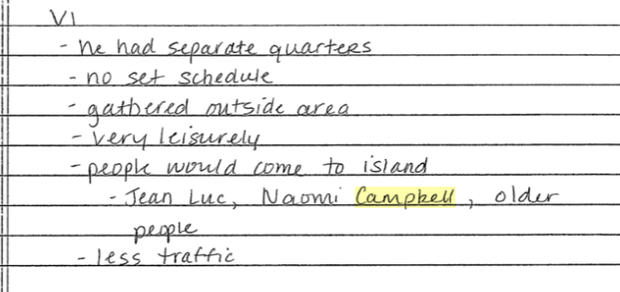 VI
- he had separate quarters
- no set schedule
- gathered outside area
- very leisurely
- people would come to island
- Jean Luc, Naomi Campbell, older
people
- less traffic